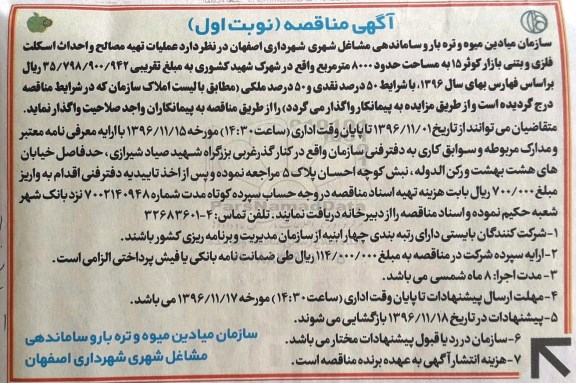 آگهی مناقصه (نوبت اول)
سازمان میادین میوه و تره بار و ساماندهی مشاغل شهری شهرداری اصفهان در نظر دارد عملیات تهیه مصالح و احداث اسکلت
فلزی و بتنی بازار کوثر ۱۵ به مساحت حدود ۸۰۰۰ مترمربع واقع در شهرک شهید کشوری به مبلغ تقریبی ۳۵/۷۹۸/۹۰۰/۹۴۲ ریال
براساس فهارس بهای سال ۱۳۹۶، با شرایط ۵۰ درصد نقدی و ۵۰ درصد ملکی (مطابق با لیست املاک سازمان که در شرایط مناقصه
درج گردیده است و از طریق مزایده به پیمانکار واگذار می گردد) را از طریق مناقصه به پیمانکاران واجد صلاحیت واگذار نماید.
متقاضیان می توانند از تاریخ ۱۳۹۶/۱۱/۰۱ تا پایان وقت اداری (ساعت ۱۴:۳۰) مورخه ۱۳۹۶/۱۱/۱۵ با ارایه معرفی نامه معتبر
و مدارک مربوطه و سوابق کاری به دفتر فنی سازمان واقع در کنار گذر غربی بزرگراه شهید صیاد شیرازی، حدفاصل خیابان
های هشت بهشت و رکن الدوله، نبش کوچه احسان پلاک ۵ مراجعه نموده و پس از اخذ تاییدیه دفتر فنی اقدام به واریز
مبلغ ۷۰۰/۰۰۰ ریال بابت هزینه تهیه اسناد مناقصه در وجه حساب سپرده کوتاه مدت شماره ۷۰۰۲۱۴۰۹۴۸ نزد بانک شهر
شعبه حکیم نموده و اسناد مناقصه را از دبیرخانه دریافت نمایند. تلفن تماس: ۴-۳۲۶۸۳۶۰۱
۱-شرکت کنندگان بایستی دارای رتبه بندی چهار ابنیه از سازمان مدیریت و برنامه ریزی کشور باشند.
۲-ارایه سپرده شرکت در مناقصه به مبلغ ۱۱۴/۰۰۰/۰۰۰ ریال طی ضمانت نامه بانکی یا فیش پرداختی الزامی است.
۳- مدت اجرا: ۸ ماه شمسی می باشد.
۴-مهلت ارسال پیشنهادات تا پایان وقت اداری (ساعت ۱۴:۳۰) مورخه ۱۳۹۶/۱۱/۱۷ می باشد.
۵-پیشنهادات در تاریخ ۱۳۹۶/۱۱/۱۸ بازگشایی می شوند.
۶-سازمان در رد یا قبول پیشنهادات مختار می باشد.
۷-هزینه انتشار آگهی به عهده برنده مناقصه است.
سازمان میادین میوه و تره بار و ساماندهی
مشاغل شهری شهرداری اصفهان
ParsNamadData